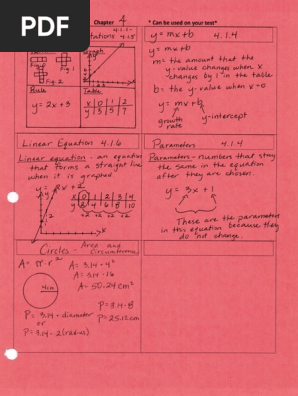 PDF
Chapter 4
* Can be used on your test*
4.1.1-
4.1.5
Fig. 1
Fig. 2
Rule
y = 2x + 3
Table
x 0 1 2
y 3 5 7
y = mx + b 4.1.4
y = mx + b
m = the amount that the
y-value changes when x
changes by 1 in the table
b = the y-value when x=0
y = mx + b
growth
rate
y-intercept
Linear Equation 4.1.6
Linear equation - an equation
that forms a straight line
when it is graphed.
y = 2x + 2
x 0 1 2 3 4
y 2 4 6 8 10
+2 +2 +2 +2
Parameters 4.1.4
Parameters - numbers that stay
the same in the equation
after they are chosen.
y = 3x + 1
These are the parameters
in this equation because they
do not change.
Circles: Area and
Circumference
A = π·r²
4cm
A = 3.14·4²
A = 3.14·16
A = 50.24 cm²
P = 3.14·diameter
or
P = 3.14·2(radius)
P = 3.14·8
P = 25.12 cm